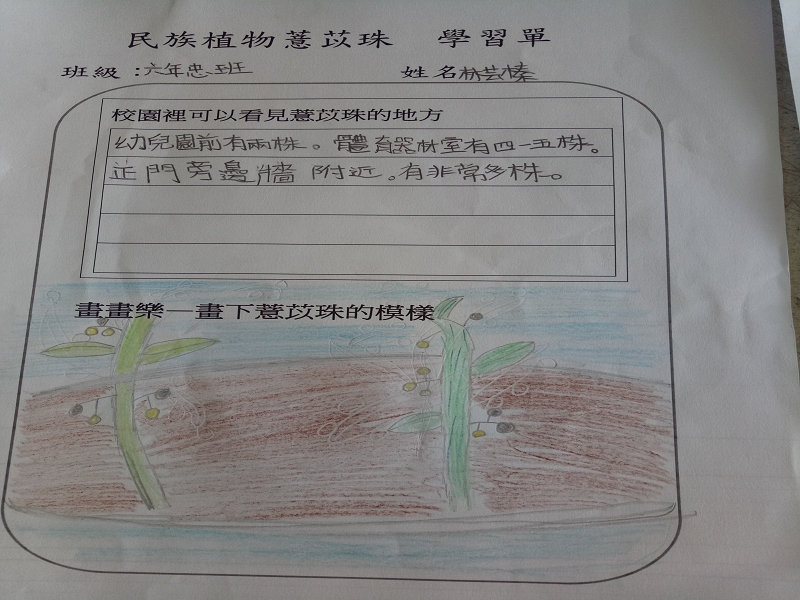 民族植物薏苡珠 學習單
班級：六年忠班 姓名林芸榛
校園裡可以看見薏苡珠的地方
幼兒園前有兩株。體育器材室有四-五株。
正門旁邊牆附近。有非常多株。
畫畫樂—畫下薏苡珠的模樣